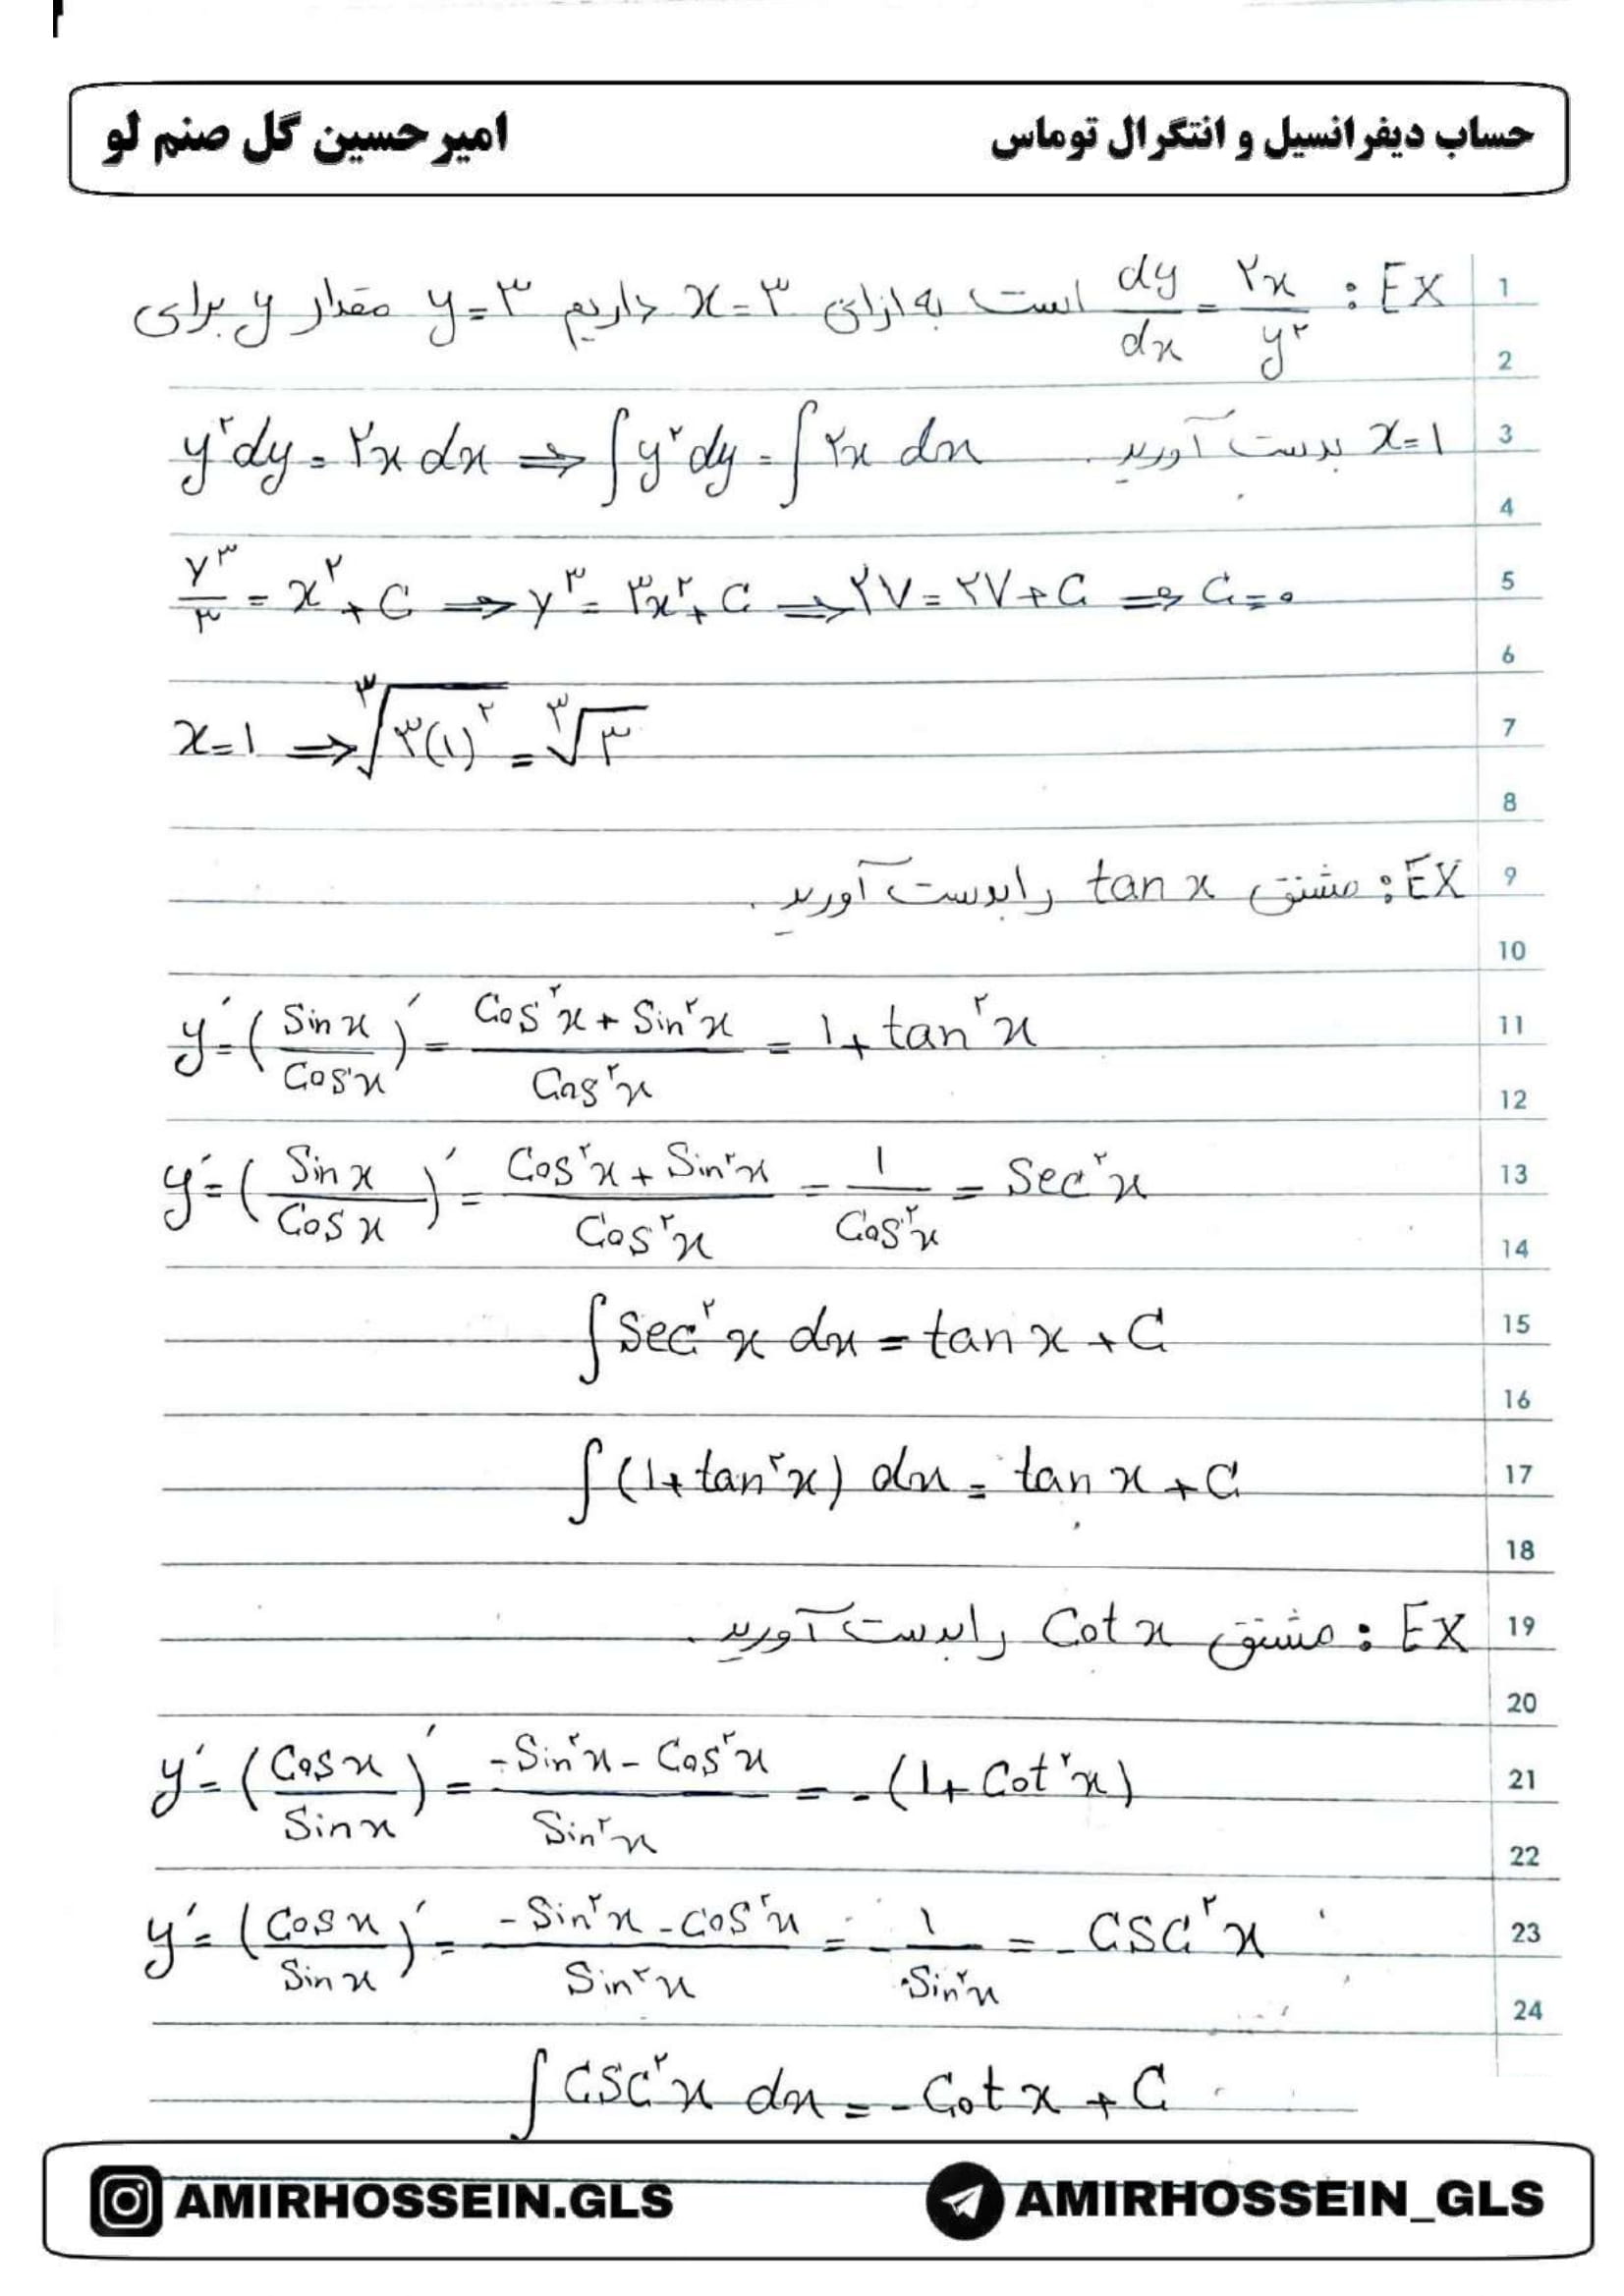 حساب دیفرانسیل و انتگرال توماس
امیرحسین گل صنم لو
EX : dy/dx = ۲x/y^۲ است به ازای x=۳ داریم y=۳ مقدار y برای
1
2
x=1 بدست آورید. y^۲dy = ۲x dx ⇒ ∫y^۲ dy = ∫۲x dx
3
4
y^۳/۳ = x^۲ + C ⇒ y^۳ = ۳x^۲ + C ⇒ ۲۷ = ۲۷ + C ⇒ C = ۰
5
6
x=1 ⇒ ∛(۳(۱)^۲) = ∛۳
7
8
EX : مشتق tan x را بدست آورید.
9
10
y′ = (Sin x/Cos x)′ = (Cos^۲x + Sin^۲x)/Cos^۲x = 1 + tan^۲x
11
12
y′ = (Sin x/Cos x)′ = (Cos^۲x + Sin^۲x)/Cos^۲x = 1/Cos^۲x = Sec^۲x
13
14
∫Sec^۲x dx = tan x + C
15
16
∫(1 + tan^۲x) dx = tan x + C
17
18
EX : مشتق Cot x را بدست آورید.
19
20
y′ = (Cos x/Sin x)′ = (-Sin^۲x - Cos^۲x)/Sin^۲x = -(1 + Cot^۲x)
21
22
y′ = (Cos x/Sin x)′ = (-Sin^۲x - Cos^۲x)/Sin^۲x = -1/Sin^۲x = -CSC^۲x
23
24
∫CSC^۲x dx = -Cot x + C
AMIRHOSSEIN.GLS
AMIRHOSSEIN_GLS